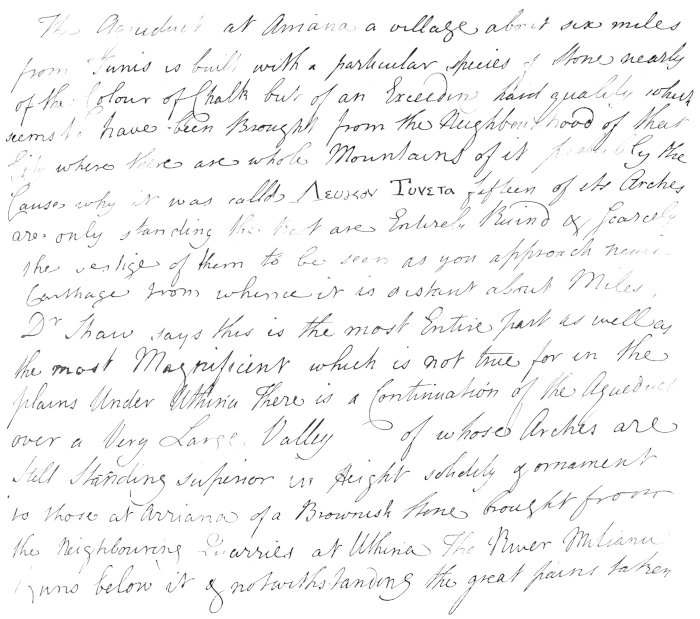 The Aqueduct at Arriana a village about six miles
from Tunis is built with a particular species of Stone nearly
of the Colour of Chalk but of an Exceeding hard quality which
seems to have been Brought from the Neighbourhood of that
City where there are whole Mountains of it probably the
Cause why it was calld Λευκον Τυνετα fifteen of its Arches
are only standing the rest are Entirely Ruind & Scarcely
the vestige of them to be seen as you approach near
Carthage from whence it is distant about Miles.
Dr Shaw says this is the most Entire part as well as
the most Magnificent which is not true for in the
plains Under Uthina There is a Continuation of the Aqueduct
over a Very Large Valley of whose Arches are
Still Standing superior in Height solidity & ornament
to those at Arriana of a Brownish Stone brought from
the Neighbouring Quarries at Uthina The River Miliana
Runs below it & notwithstanding the great pains taken